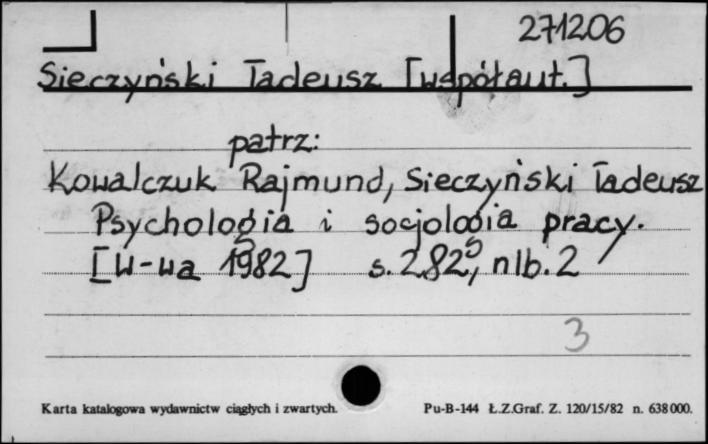 271206
Sieczyński Tadeusz [współaut.]
patrz:
Kowalczuk Rajmund, Sieczyński Tadeusz
Psychologia i socjologia pracy.
[W-wa 1982] s. 282, nlb. 2
3
Karta katalogowa wydawnictw ciągłych i zwartych. Pu-B-144 Ł.Z.Graf. Z. 120/15/82 n. 638000.